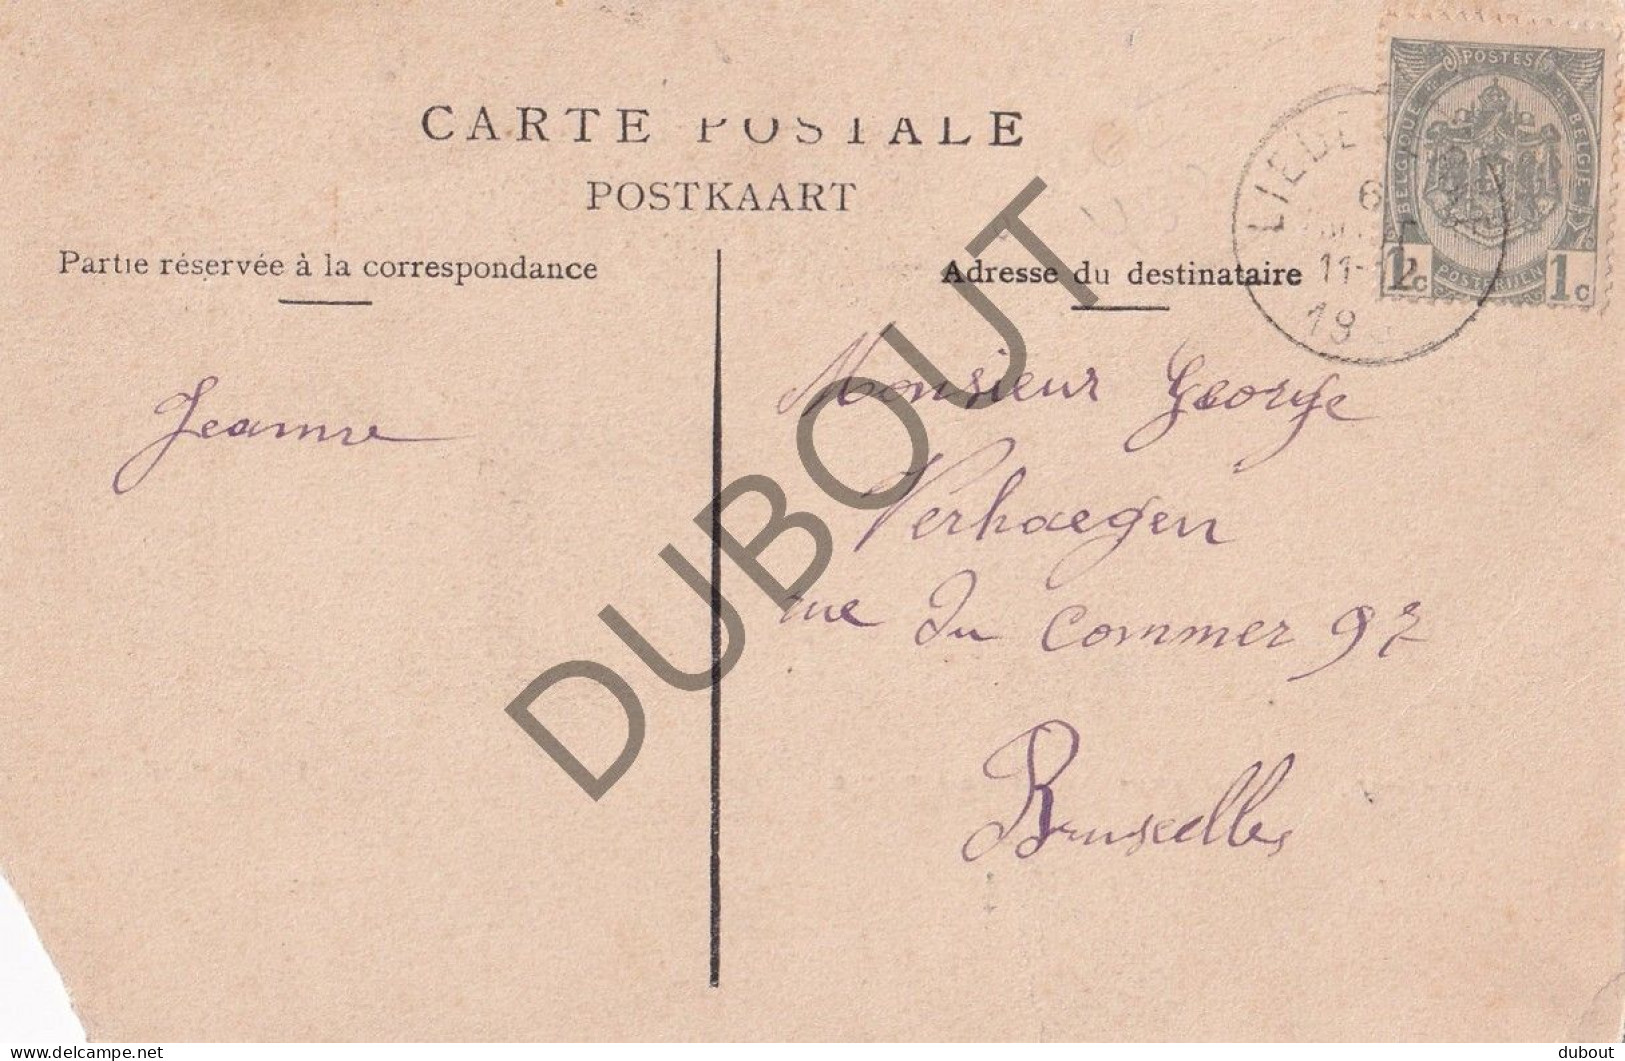 CARTE POSTALE
POSTKAART
Partie réservée à la correspondance
Adresse du destinataire
POSTES
BELGIQUE
BELGIË
POSTERIJEN
1c 1c
6
11-12
Jeanne
Monsieur George
Verhaegen
rue du Commer 97
Bruxelles
DUBOUT
delcampe.net
dubout